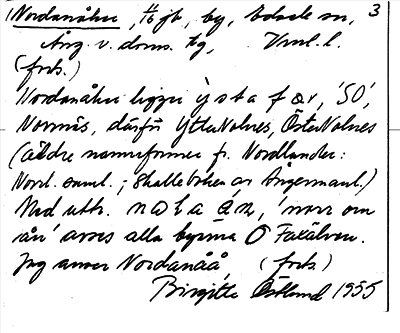 Nordanåker, 1/16 jb, by, Edsele sn, 3
Ång. v. doms. tg, Vnml. l.
(forts.)
Nordanåker ligger i ö s t a f ör, 'SO',
Nornäs, därför YtterNolnes, ÖsterNolnes
(äldre namnformer fr. Nordlander:
Norrl. saml.; Skatteböcker av Ångermanl.)
Med uttr. n o l a å n, 'norr om
ån' avses alla byarna O Faxälven.
Jag anser Nordanåå (forts.)
Birgitta Östlund 1955